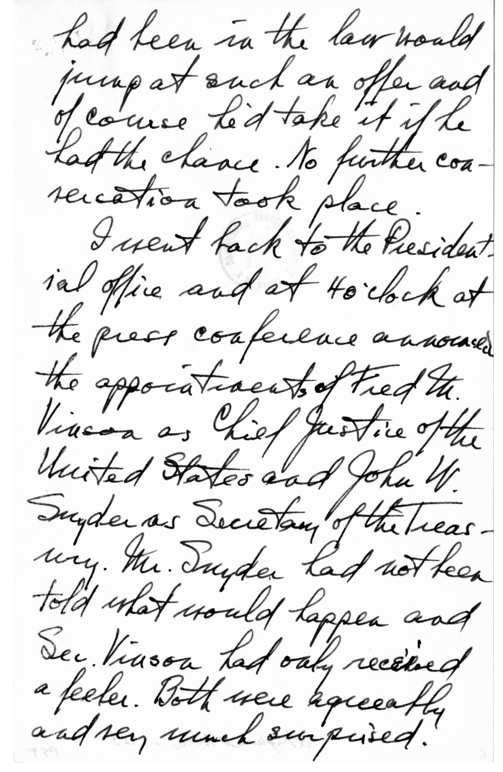 had been in the law would
jump at such an offer and
of course he'd take it if he
had the chance. No further con-
versation took place.
I went back to the President-
ial office and at 4 o'clock at
the press conference announced
the appointments of Fred M.
Vinson as Chief Justice of the
United States and John W.
Snyder as Secretary of the Treas-
ury. Mr. Snyder had not been
told what would happen and
Sec. Vinson had only received
a feeler. Both were agreeably
and very much surprised.